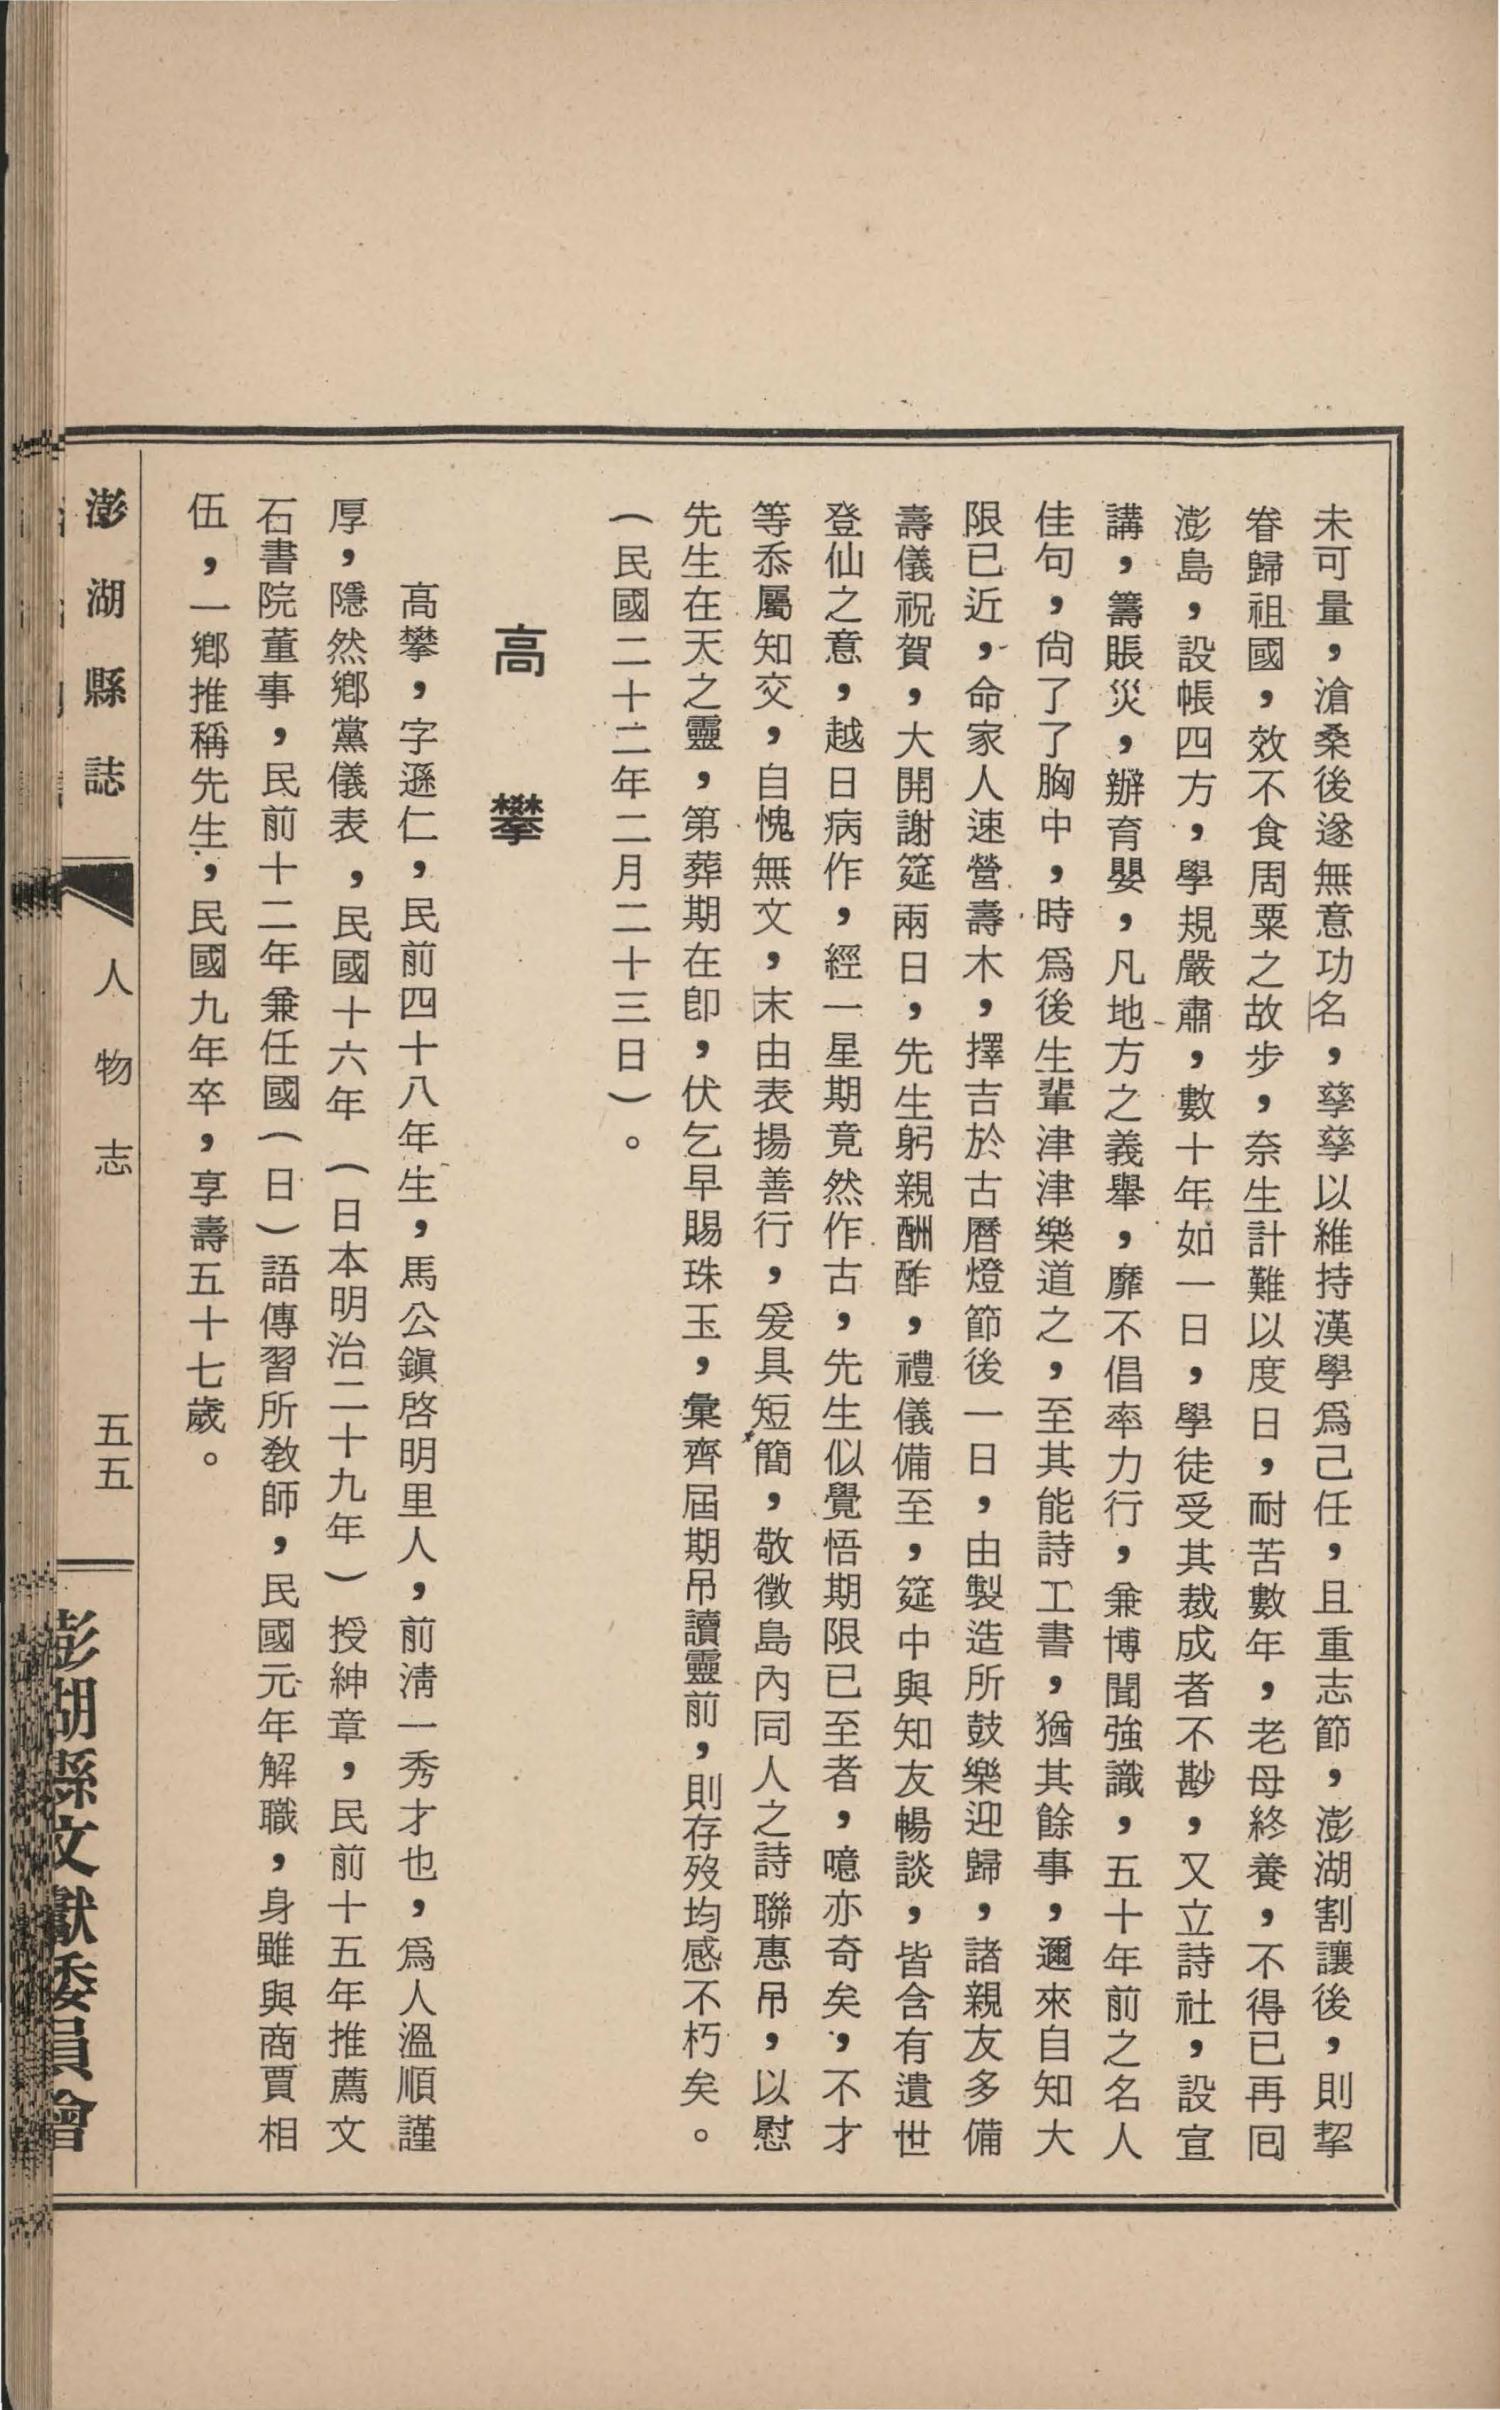 未可量，滄桑後遂無意功名，孳孳以維持漢學爲己任，且重志節，澎湖割讓後，則挈
眷歸祖國，效不食周粟之故步，奈生計難以度日，耐苦數年，老母終養，不得已再囘
澎島，設帳四方，學規嚴肅，數十年如一日，學徒受其裁成者不尠，又立詩社，設宣
講，籌賬災，辦育嬰，凡地方之義舉，靡不倡率力行，兼博聞強識，五十年前之名人
佳句，尙了了胸中，時爲後生輩津津樂道之，至其能詩工書，猶其餘事，邇來自知大
限已近，命家人速營壽木，擇吉於古曆燈節後一日，由製造所鼓樂迎歸，諸親友多備
壽儀祝賀，大開謝筵兩日，先生躬親酬酢，禮儀備至，筵中與知友暢談，皆含有遺世
登仙之意，越日病作，經一星期竟然作古，先生似覺悟期限已至者，噫亦奇矣，不才
等忝屬知交，自愧無文，末由表揚善行，爰具短簡，敬徵島內同人之詩聯惠吊，以慰
先生在天之靈，第葬期在卽，伏乞早賜珠玉，彙齊屆期吊讀靈前，則存歿均感不朽矣。
（民國二十二年二月二十三日）。
高攀
高攀，字遜仁，民前四十八年生，馬公鎭啓明里人，前淸一秀才也，爲人溫順謹
厚，隱然鄕黨儀表，民國十六年（日本明治二十九年）授紳章，民前十五年推薦文
石書院董事，民前十二年兼任國（日）語傳習所敎師，民國元年解職，身雖與商賈相
伍，一鄕推稱先生，民國九年卒，享壽五十七歲。
澎湖縣誌 人物志 五五 澎湖縣文獻委員會